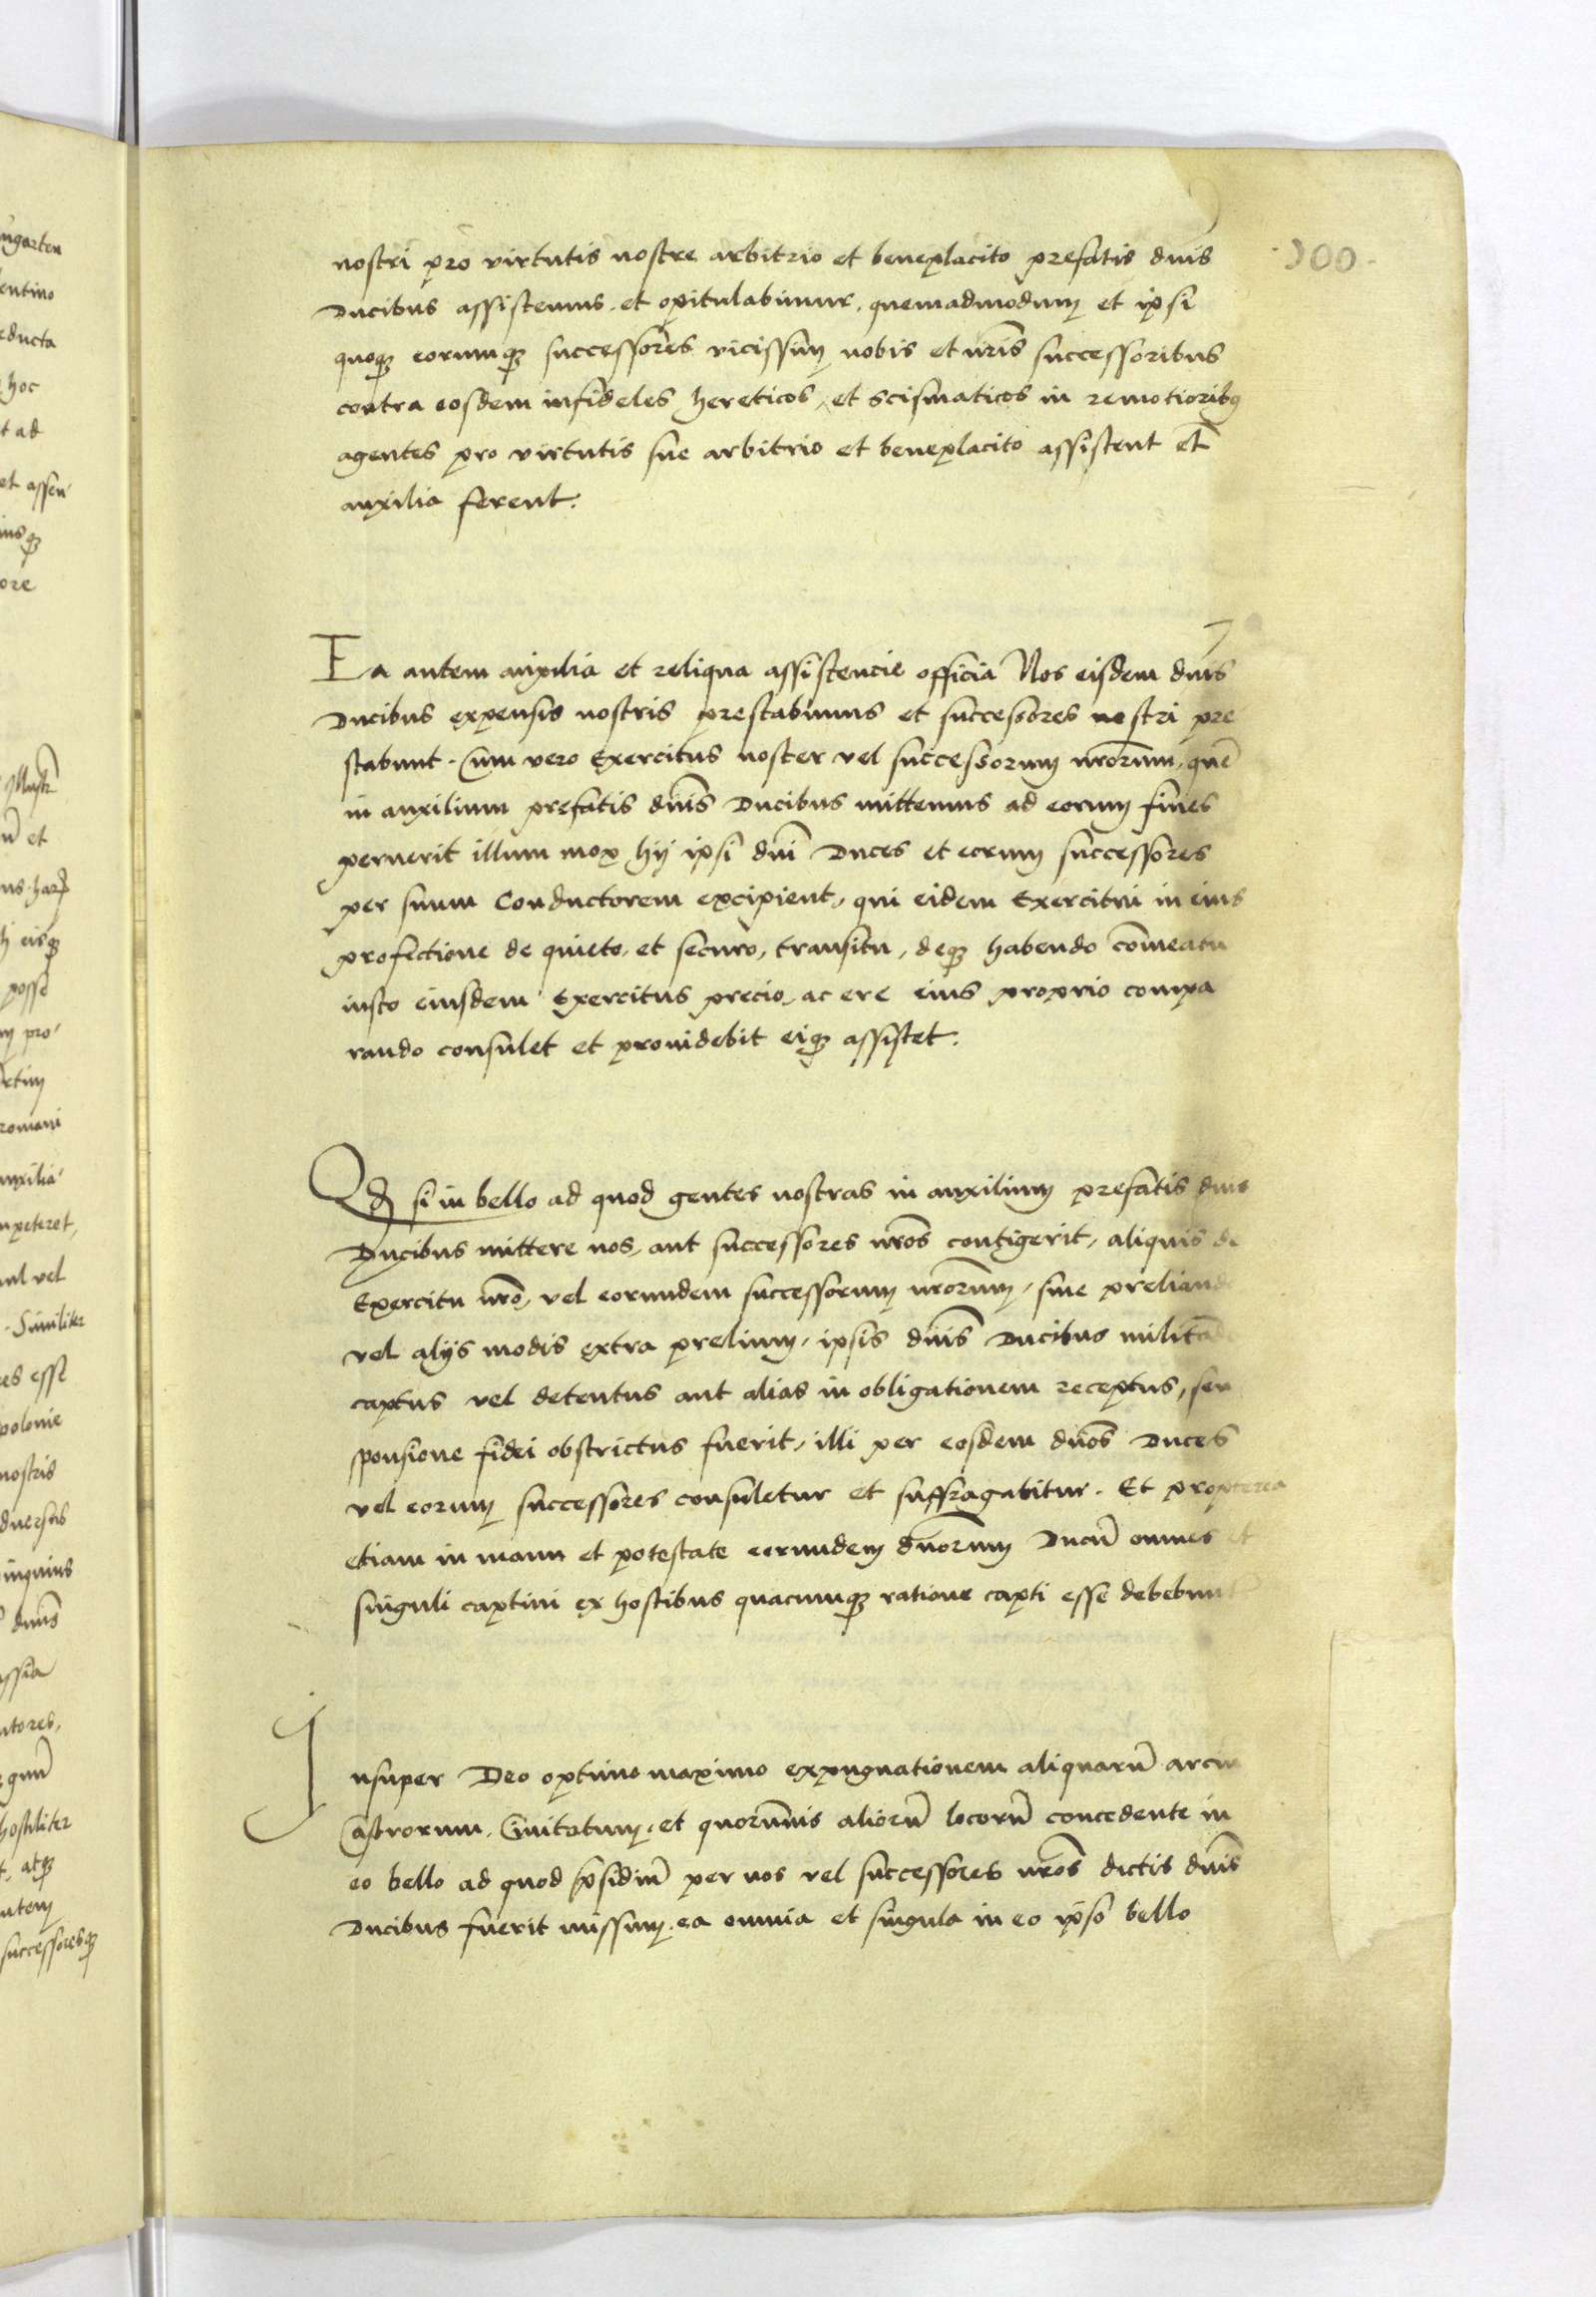 nostri pro virtutis nostre arbitrio et beneplacito prefatis dnis
Ducibus assistemus. et opitulabimur. quemadmodum et ipsi
quoque eorumque successores vicissim nobis et nris successoribus
contra eosdem infideles hereticos, et scismaticos in remotioribus
agentes pro virtutis sue arbitrio et beneplacito assistent et
auxilia ferent.
Ea autem auxilia et reliqua assistencie officia Nos eisdem dnis
Ducibus expensis nostris prestabimus et successores nostri pre
stabunt. Cum vero Exercitus noster vel successorum nrorum, quem
in auxilium prefatis dnis Ducibus mittemus ad eorum fines
peruerit illum mox hij ipsi dni Duces et eorum successores
per suum Conductorem excipient, qui eidem Exercitui in eius
profectione de quieto, et securo, transitu, deque habendo comeatu
iusto eiusdem Exercitus precio, ac ere eius proprio compa
rando consulet et prouidebit eique assistet.
Qd si in bello ad quod gentes nostras in auxilium prefatis dnis
Ducibus mittere nos, aut successores nros contigerit, aliquis de
Exercitu nro, vel eorumdem successorum nrorum, siue preliando
vel alijs modis extra prelium, ipsis dnis Ducibus militado
captus vel detentus aut alias in obligationem receptus, seu
sponsione fidei obstrictus fuerit, illi per eosdem dnos Duces
vel eorum successores consuletur et suffragabitur. Et propterea
etiam in manu et potestate eorumdem dnorum Ducum omnes et
singuli captiui ex hostibus quacumque ratione capti esse debebunt
Insuper Deo optimo maximo expugnationem aliquarum arcium
Castrorum. Ciuitatum. et quorumuis aliorum locorum concedente in
eo bello ad quod psidium per nos vel successores nros dictis dnis
Ducibus fuerit missum. ea omnia et singula in eo ipso bello